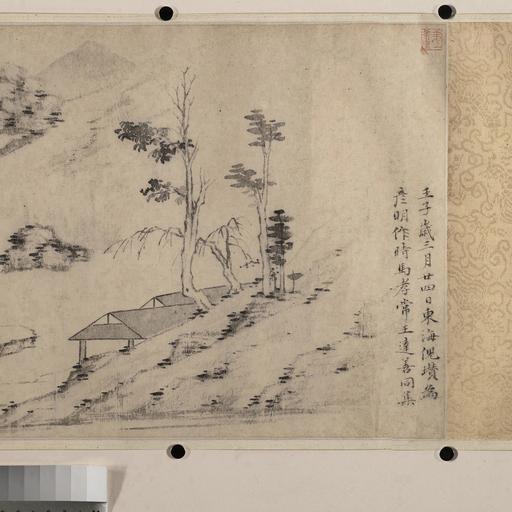 壬子歲三月廿四日東海倪瓚為
彥明作時馬孝常王達善同集